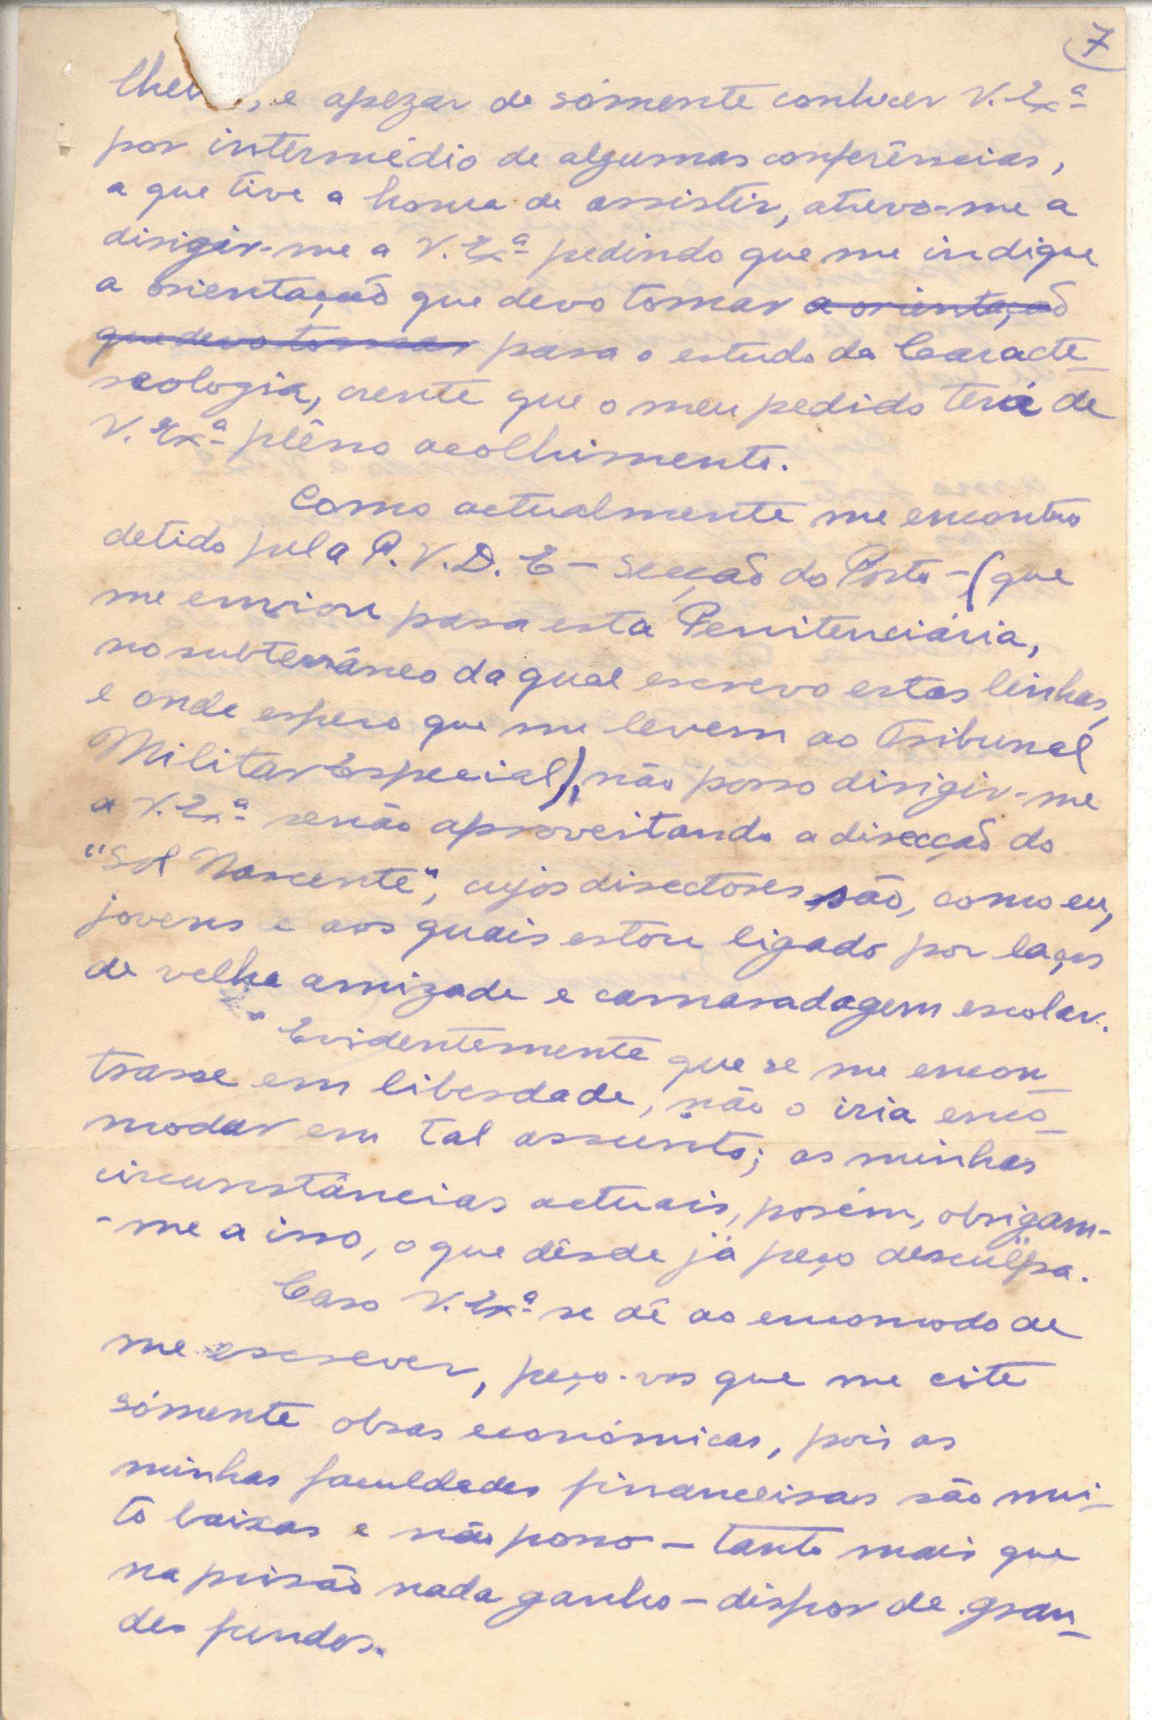 7
lhe , e apezar de sómente conhecer V. Exª
por intermédio de algumas conferências,
a que tive a honra de assistir, atrevo-me a
dirigir-me a V. Exª pedindo que me indique
a orientação que devo tomar a orientação
que devo tomar para o estudo da Caracte-
reologia, crente que o meu pedido terá de
V. Exª plêno acolhimento.
Como actualmente me encontro
detido pela P. V. D. E - Secção do Porto - (que
me enviou para esta Penitenciária,
no subterrâneo da qual escrevo estas linhas,
e onde espero que me levem ao Tribunal
Militar Especial), não posso dirigir-me
a V. Exª senão aproveitando a direcção do
"Sol Nascente", cujos directores são, como eu,
jovens e aos quais estou ligado por laços
de velha amizade e camaradagem escolar.
Evidentemente que se me encon-
trasse em liberdade, não o iria enco-
modar em tal assunto; as minhas
circunstâncias actuais, porém, obrigam-
-me a isso, o que dêsde já peço desculpa.
Caso V. Exª se dê ao encomodo de
me escrever, peço-vos que me cite
sómente obras económicas, pois as
minhas faculdades financeiras são mui-
to baixas e não posso - tanto mais que
na prisão nada ganho - dispor de gran-
des fundos.